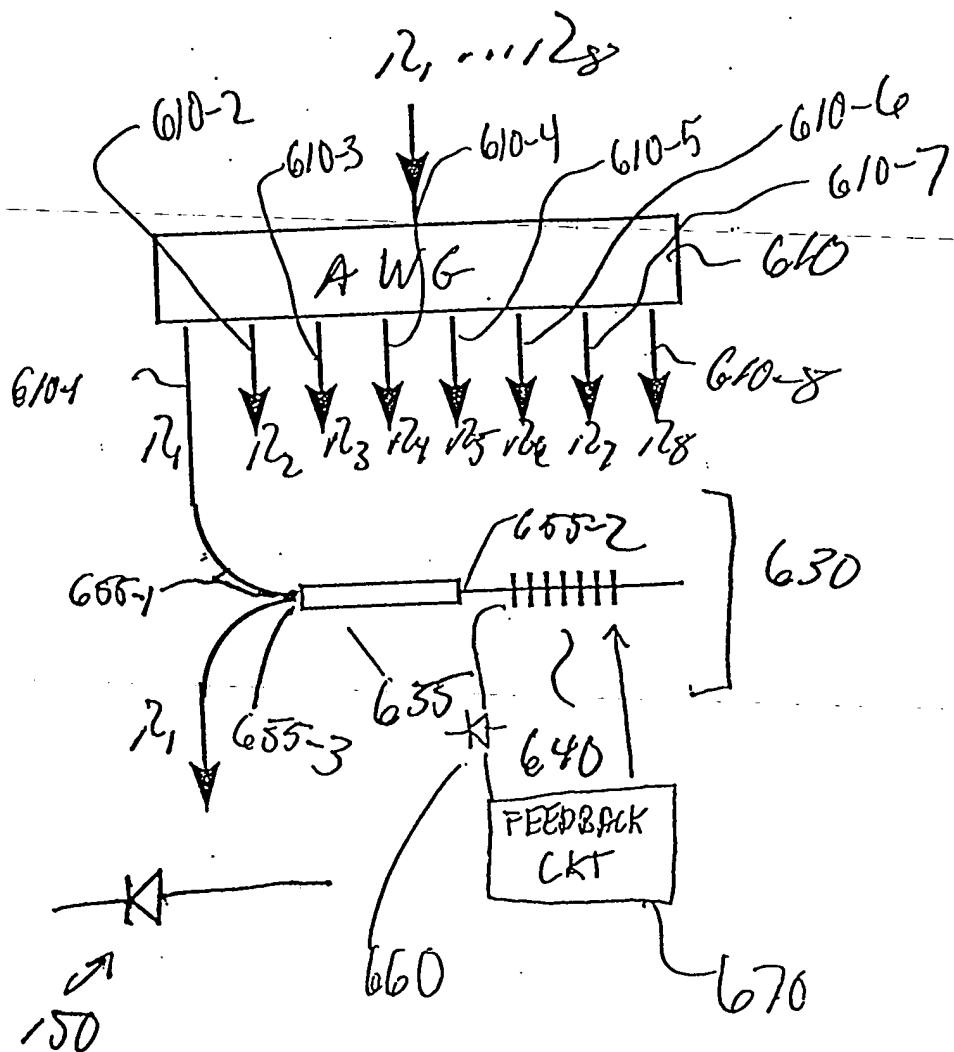 λ₁ ... λ₈
610-2
610-3
610-4
610-5
610-6
610-7
AWG
610
610-1
610-8
λ₁
λ₂
λ₃
λ₄
λ₅
λ₆
λ₇
λ₈
655-2
630
655-1
655
λ₁
655-3
640
FEEDBACK
CKT
660
670
150